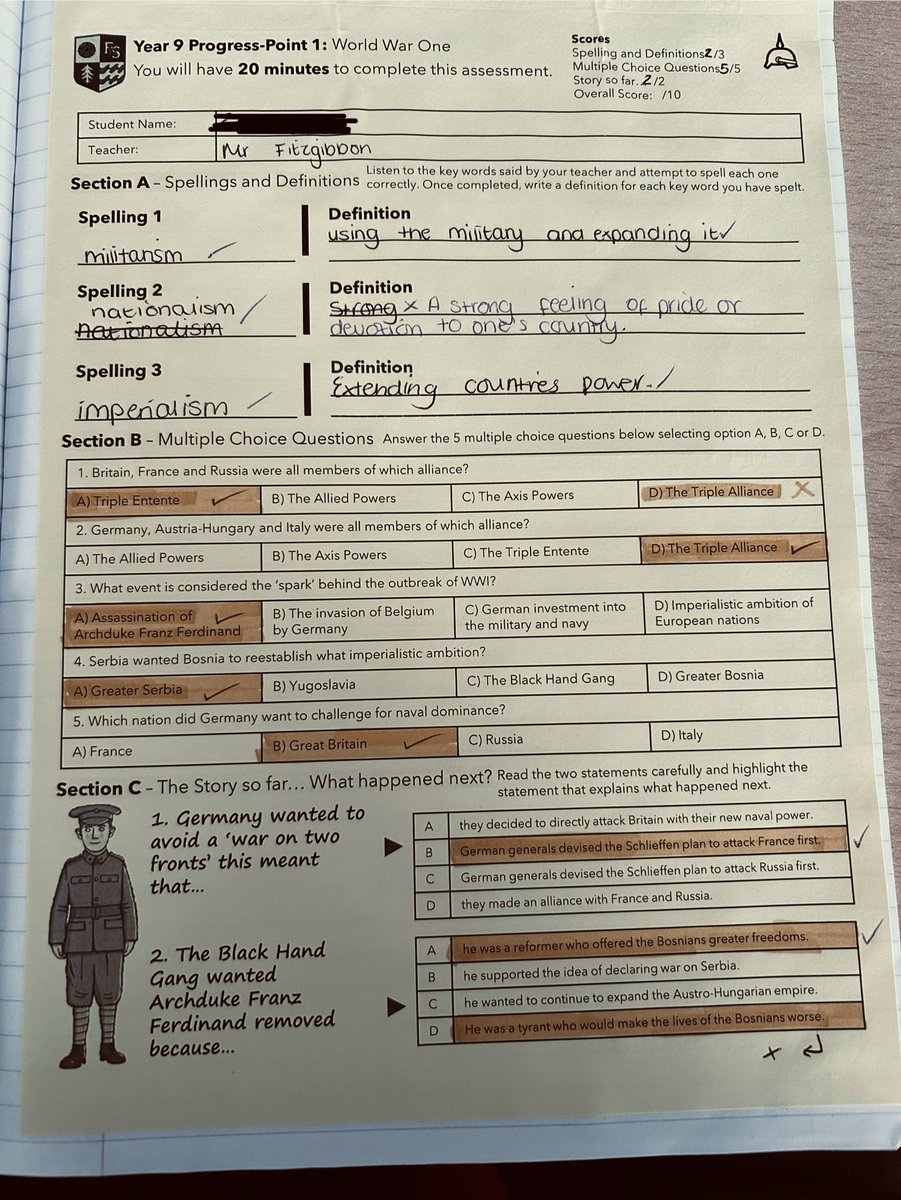 FS
Year 9 Progress-Point 1: World War One
You will have 20 minutes to complete this assessment.
Scores
Spelling and Definitions 2/3
Multiple Choice Questions 5/5
Story so far. 2/2
Overall Score: /10
Student Name:
Teacher: Mr Fitzgibbon
Section A – Spellings and Definitions Listen to the key words said by your teacher and attempt to spell each one
correctly. Once completed, write a definition for each key word you have spelt.
Spelling 1
militarism ✓
Definition
using the military and expanding it ✓
Spelling 2
nationalism
nationalism
Definition
Strong × A strong feeling of pride or
devotion to one's country.
Spelling 3
imperialism ✓
Definition
Extending countries power. ✓
Section B – Multiple Choice Questions Answer the 5 multiple choice questions below selecting option A, B, C or D.
1. Britain, France and Russia were all members of which alliance?
A) Triple Entente ✓ B) The Allied Powers C) The Axis Powers D) The Triple Alliance ×
2. Germany, Austria-Hungary and Italy were all members of which alliance?
A) The Allied Powers B) The Axis Powers C) The Triple Entente D) The Triple Alliance ✓
3. What event is considered the 'spark' behind the outbreak of WWI?
A) Assassination of ✓
Archduke Franz Ferdinand
B) The invasion of Belgium
by Germany
C) German investment into
the military and navy
D) Imperialistic ambition of
European nations
4. Serbia wanted Bosnia to reestablish what imperialistic ambition?
A) Greater Serbia ✓ B) Yugoslavia C) The Black Hand Gang D) Greater Bosnia
5. Which nation did Germany want to challenge for naval dominance?
A) France B) Great Britain ✓ C) Russia D) Italy
Section C – The Story so far… What happened next? Read the two statements carefully and highlight the
statement that explains what happened next.
1. Germany wanted to
avoid a 'war on two
fronts' this meant
that…
A they decided to directly attack Britain with their new naval power.
B German generals devised the Schlieffen plan to attack France first. ✓
C German generals devised the Schlieffen plan to attack Russia first.
D they made an alliance with France and Russia.
2. The Black Hand
Gang wanted
Archduke Franz
Ferdinand removed
because…
A he was a reformer who offered the Bosnians greater freedoms. ✓
B he supported the idea of declaring war on Serbia.
C he wanted to continue to expand the Austro-Hungarian empire.
D He was a tyrant who would make the lives of the Bosnians worse.
× ↲